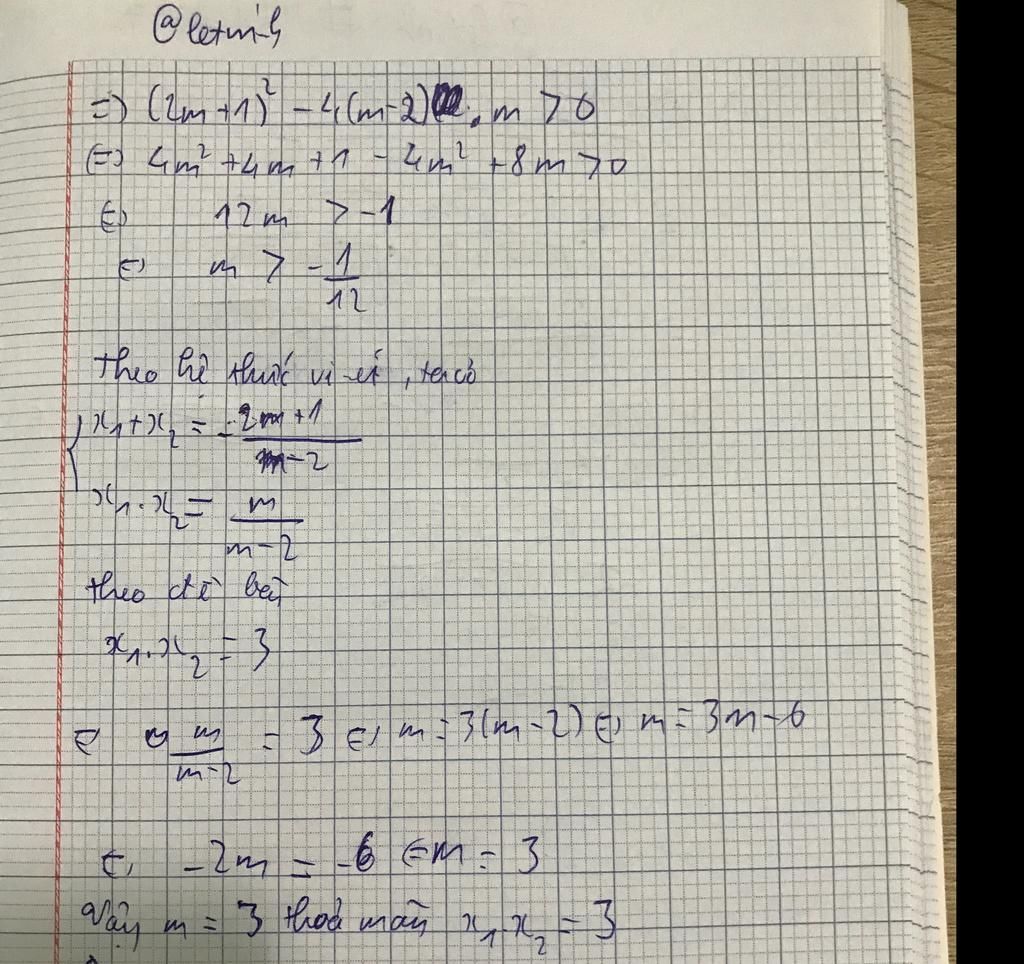 @letminh
=> (2m+1)² - 4(m-2).m > 0
<=> 4m² + 4m + 1 - 4m² + 8m > 0
<=> 12m > -1
<=> m > -1/12
theo hệ thức vi-ét, ta có
x₁+x₂ = -(2m+1)/(m-2)
x₁.x₂ = m/(m-2)
theo đề bài
x₁.x₂ = 3
<=> m/(m-2) = 3 <=> m = 3(m-2) <=> m = 3m-6
<=> -2m = -6 <=> m = 3
Vậy m = 3 thoả mãn x₁.x₂ = 3